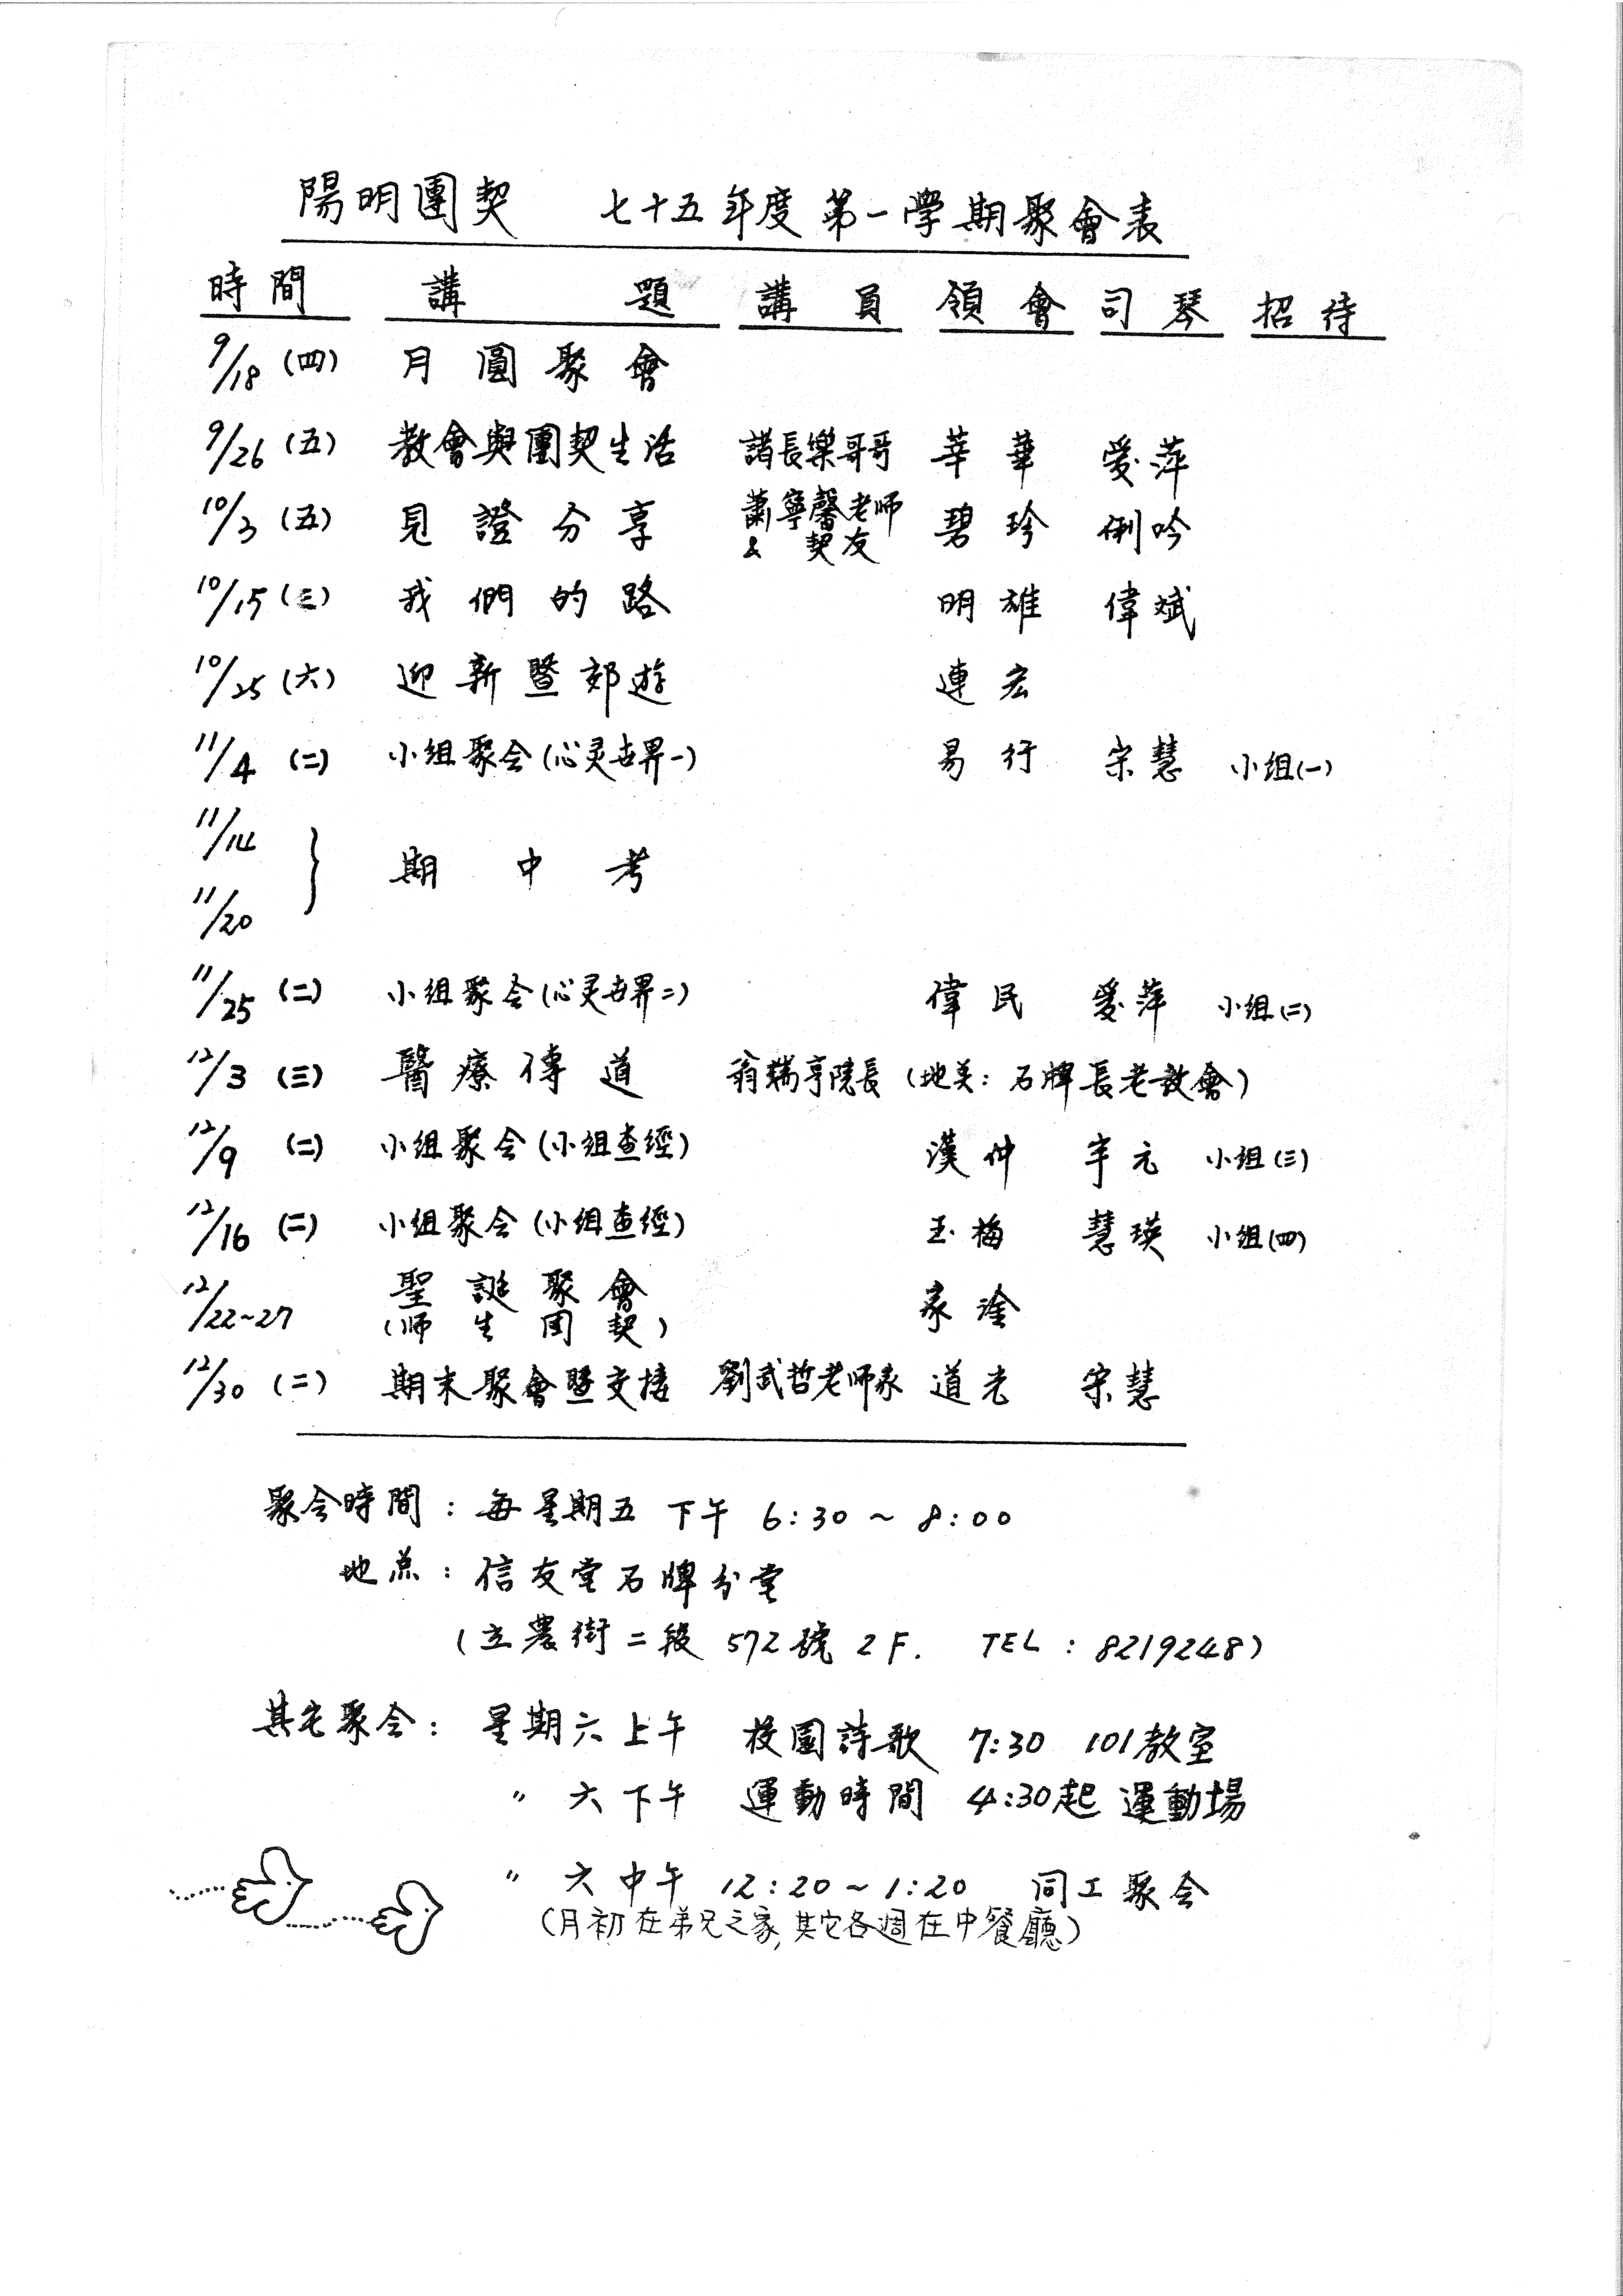 陽明團契 七十五年度第一學期聚會表
時間 講題 講員 領會 司琴 招待
9/18 (四) 月圓聚會
9/26 (五) 教會與團契生活 諸長樂哥哥 莘華 愛萍
10/3 (五) 見證分享 蕭寧馨老师 & 契友 碧珍 俐吟
10/15 (三) 我們的路 明雄 偉斌
10/25 (六) 迎新暨郊遊 連宏
11/4 (二) 小组聚会(心灵世界一) 易行 宗慧 小组(一)
11/14
} 期中考
11/20
11/25 (二) 小组聚会(心灵世界二) 偉民 愛萍 小组(二)
12/3 (三) 醫療傳道 翁瑞亨院長 (地美: 石牌長老教會)
12/9 (二) 小组聚会(小组查經) 漢仲 宇元 小组(三)
12/16 (二) 小组聚会(小组查經) 玉梅 慧瑛 小组(四)
12/22~27 聖誕聚會 家淦
(师生团契)
12/30 (二) 期末聚會暨交接 劉武哲老师家 道光 宗慧
聚会時間: 每星期五 下午 6:30 ~ 8:00
地点: 信友堂石牌分堂
(立農街二段 572號 2F. TEL: 8219248)
其它聚会: 星期六上午 校園詩歌 7:30 101教室
〃 六下午 運動時間 4:30起 運動場
〃 六中午 12:20~1:20 同工聚会
(月初在弟兄之家, 其它各週在中餐廳)